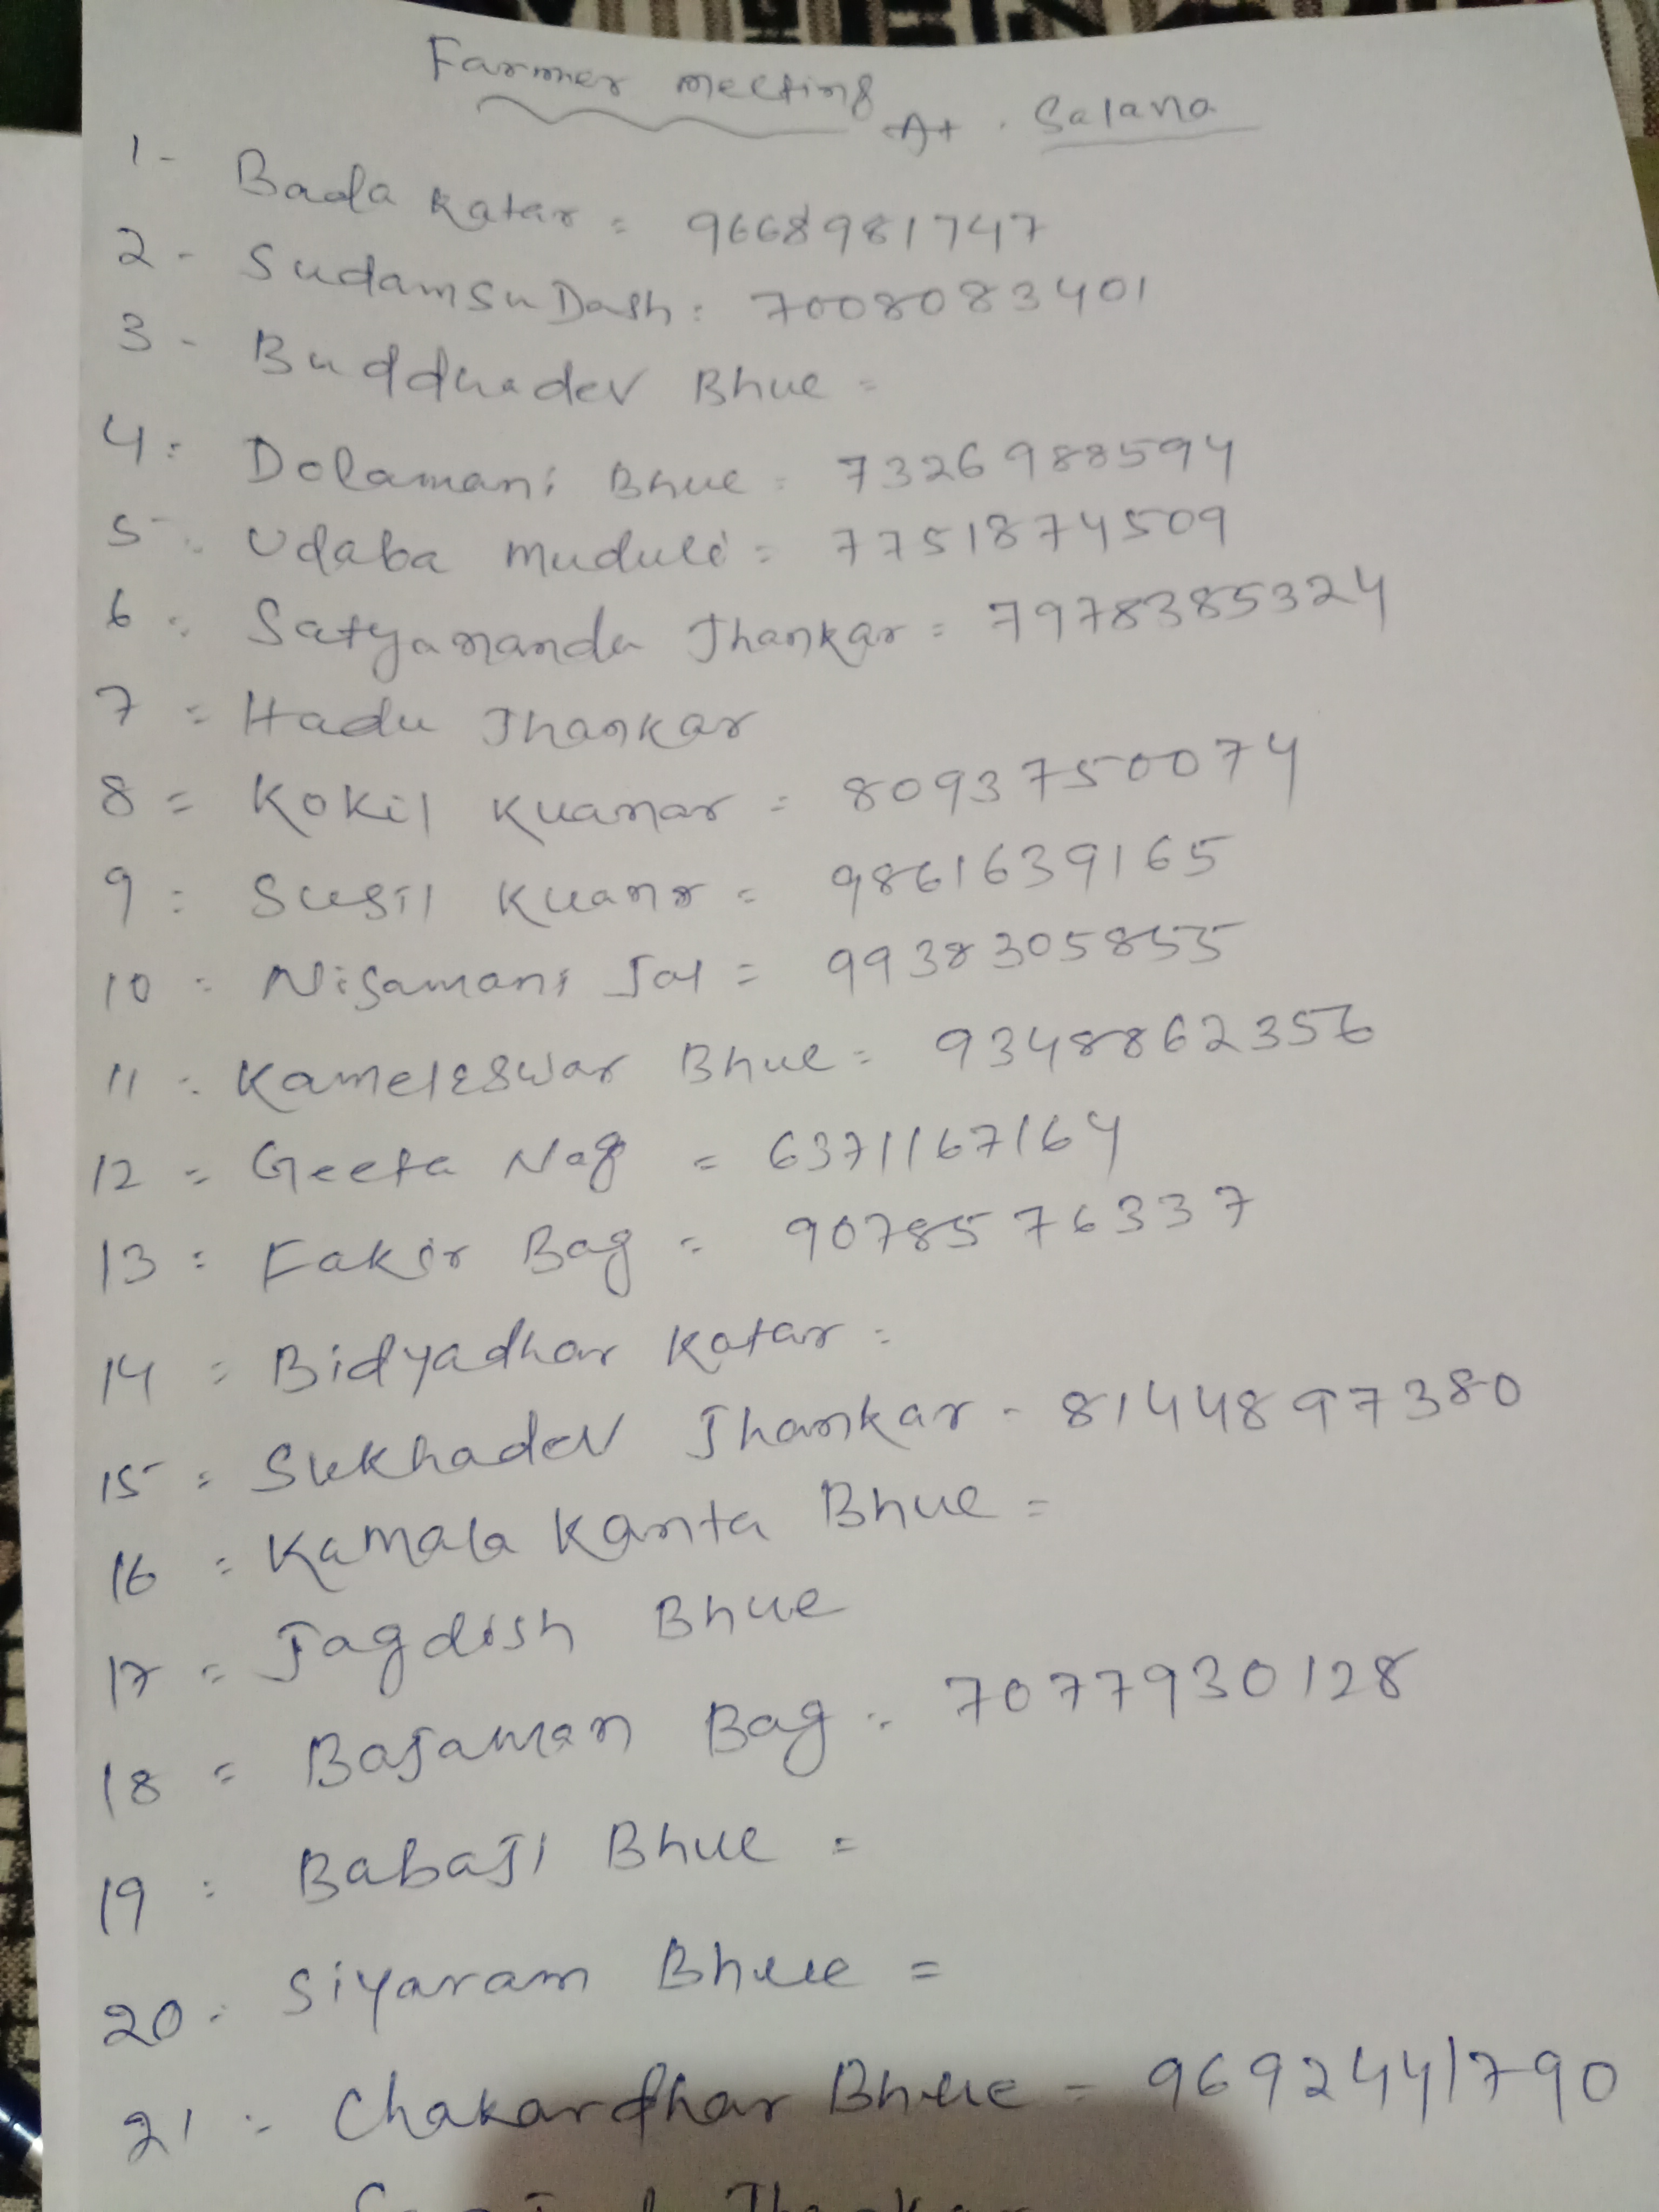 Farmer meeting
At. Salana
1- Bada Katar = 9668981747
2- Sudamsu Dash: 7008083401
3- Buddhadev Bhue =
4: Dolamani Bhue = 7326988594
5: Udaba muduli = 7751874509
6: Satyananda Jhankar = 7978385324
7 = Hadu Jhankar
8 = Kokil Kuanar = 8093750074
9 = Susil Kuanr = 9861639165
10 = Nisamani Jal = 9938305855
11 = Kameleswar Bhue = 9348862356
12 = Geeta Nag = 6371167164
13 = Fakir Bag = 9078576337
14 = Bidyadhar Katar =
15 = Sukhadev Jhankar - 8144897380
16 = Kamala Kanta Bhue =
17 = Jagdish Bhue
18 = Bajaman Bag = 7077930128
19 = Babaji Bhue =
20 - Siyaram Bhue =
21 = Chakardhar Bhue - 9692441790
Jhankar